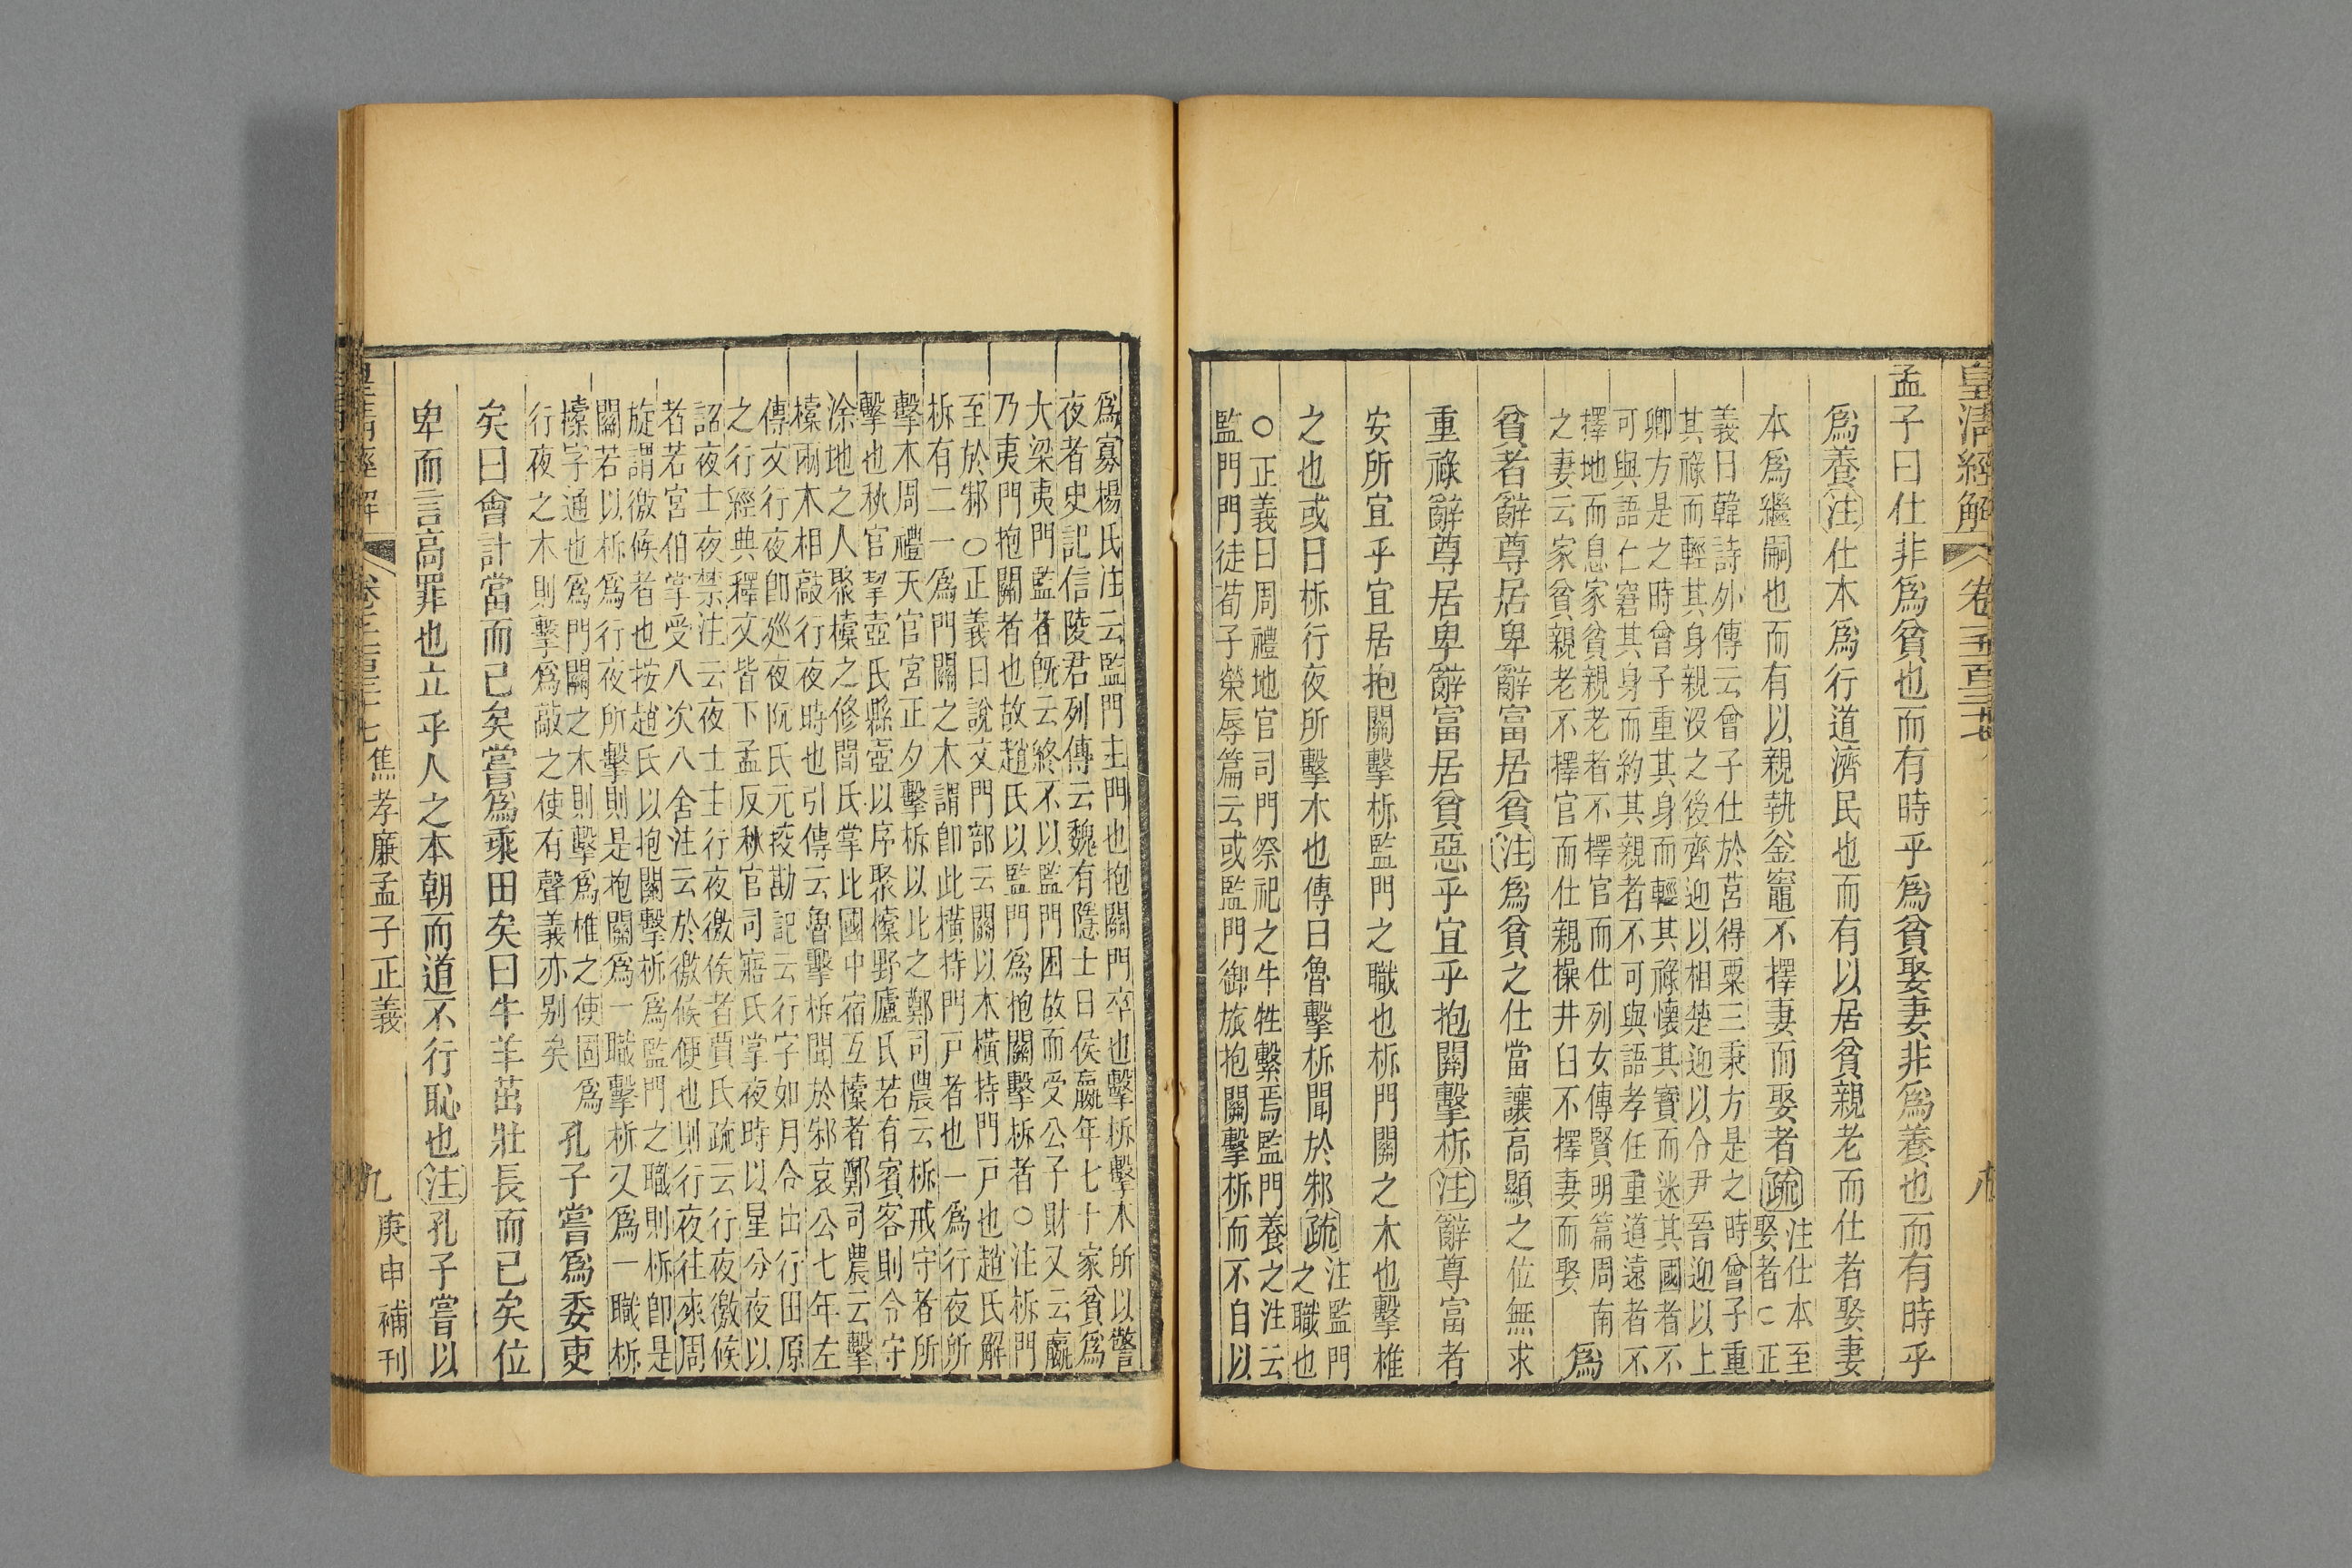 皇清經解
孟子曰仕非爲貧也而有時乎爲貧娶妻非爲養也而有時乎
爲養注仕本爲行道濟民也而有以居貧親老而仕者娶妻
本爲繼嗣也而有以親執釜竈不擇妻而娶者疏注仕本至
娶者○正
義曰韓詩外傳云曾子仕於莒得粟三秉方是之時曾子重
其祿而輕其身親沒之後齊迎以相楚迎以令尹晉迎以上
卿方是之時曾子重其身而輕其祿懷其寶而迷其國者不
可與語仁窘其身而約其親者不可與語孝任重道遠者不
擇地而息家貧親老者不擇官而仕列女傳賢明篇周南
之妻云家貧親老不擇官而仕親操井臼不擇妻而娶
爲
貧者辭尊居卑辭富居貧注爲貧之仕當讓高顯之位無求
重祿辭尊居卑辭富居貧惡乎宜乎抱關擊柝注辭尊富者
安所宜乎宜居抱關擊柝監門之職也柝門關之木也擊椎
之也或曰柝行夜所擊木也傳曰魯擊柝聞於邾疏注監門
之職也
○正義曰周禮地官司門祭祀之牛牲繫焉監門養之注云
監門門徒荀子榮辱篇云或監門御旅抱關擊柝而不自以
爲寡楊氏注云監門主門也抱關門卒也擊柝擊木所以警
夜者史記信陵君列傳云魏有隱士曰侯嬴年七十家貧爲
大梁夷門監者旣云終不以監門困故而受公子財又云嬴
乃夷門抱關者也故趙氏以監門爲抱關擊柝者○注柝門
至於邾○正義曰說文門部云關以木橫持門戸也趙氏解
柝有二一爲門關之木謂卽此橫持門戸者也一爲行夜所
擊木周禮天官宮正夕擊柝以比之鄭司農云柝戒守者所
擊也秋官挈壺氏縣壺以序聚㯓野廬氏若有賓客則令守
涂地之人聚㯓之修閭氏掌比國中宿互㯓者鄭司農云擊
㯓兩木相敲行夜時也引傳云魯擊柝聞於邾哀公七年左
傳文行夜卽巡夜阮氏元挍勘記云行字如月令出行田原
之行經典釋文皆下孟反秋官司寤氏掌夜時以星分夜以
詔夜士夜禁注云夜士主行夜徼候者賈氏疏云行夜徼候
者若宮伯掌受八次八舍注云於徼候便也則行夜往來周
旋謂徼候者也按趙氏以抱關擊柝爲監門之職則柝卽是
關若以柝爲行夜所擊則是抱關爲一職擊柝又爲一職柝
㯓字通也爲門關之木則擊爲椎之使固爲
行夜之木則擊爲敲之使有聲義亦別矣
孔子嘗爲委吏
矣曰會計當而已矣嘗爲乘田矣曰牛羊茁壯長而已矣位
卑而言高罪也立乎人之本朝而道不行恥也注孔子嘗以
焦孝廉孟子正義
九
庚申補刊